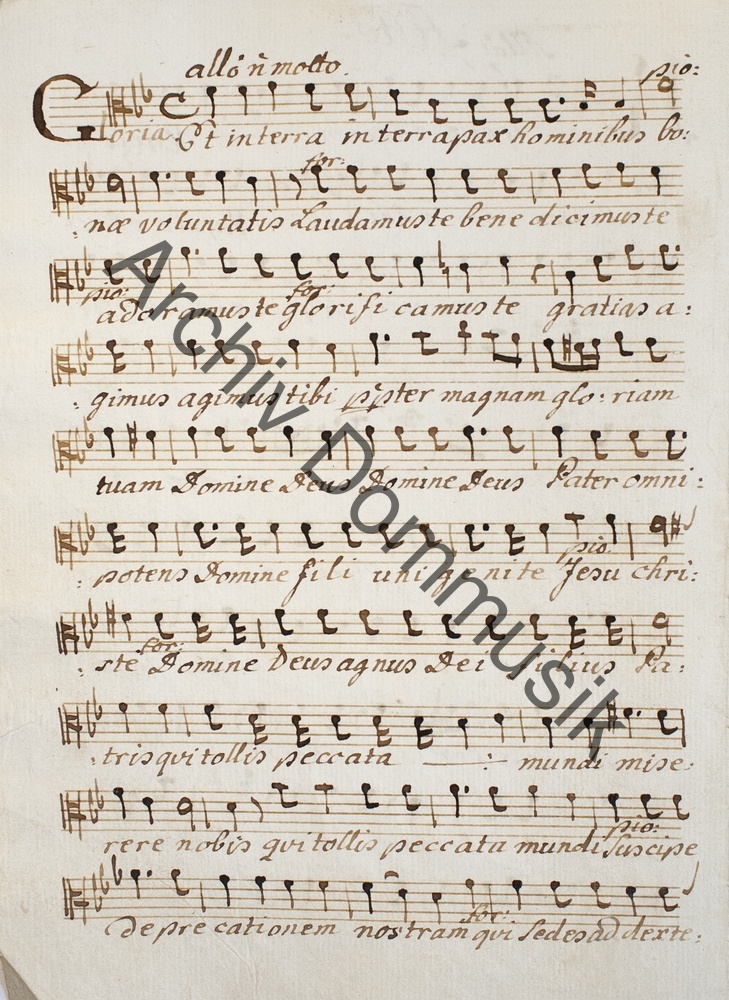 allo ñ molto. pio:
Gloria. Et in terra in terra pax hominibus bo:
for:
næ voluntatis Laudamus te bene dicimus te
pio: for:
adoramus te glorifi camus te gratias a:
gimus agimus tibi ppter magnam glo: riam
tuam Domine Deus Domine Deus Pater omni:
pio
potens Domine fili uni genite Jesu chri:
for:
ste Domine Deus agnus Dei filius Pa:
tris qui tollis peccata mundi mise:
pio:
rere nobis qui tollis peccata mundi suscipe
for:
depre cationem nostram qui sedes ad dexte:
Archiv Dommusik